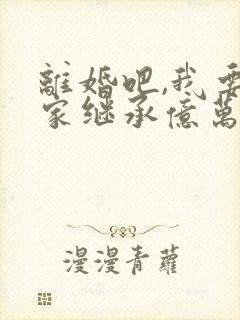 離婚吧,我要
家继承億萬
漫漫青蘿